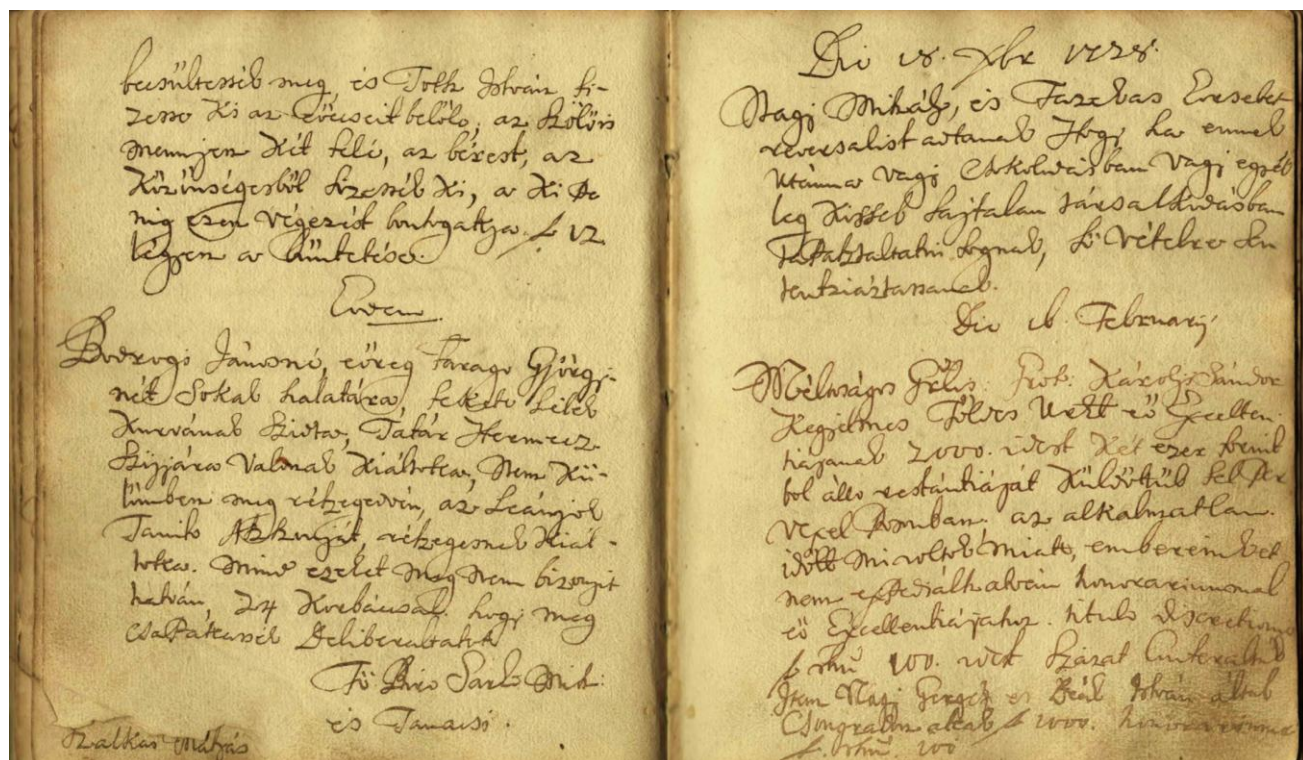 becsültessék meg, és Toth Istvan fi-
zesse Ki az eöcseit belöle, az Szölöis
mennijen Két felé, az bérest, az
Közönségesböl fizessék Ki, a Ki
nig ezen végezést bontogattja f 12
légyen a büntetése.
Eodem.
Bodrogi Jánosné, eöreg Farago Györgj-
nét Sokak halatára, fekete Lélek
Kurvának Szidta, Tatár Hermecz
Szijjára Valonak Kiáltotta, Nem Kü-
lömben meg részegedvén, az Leányok
Tanito Aszszonját, részegesnek Kiál-
totta. Mind ezeket meg nem bizonyit
hatván, 24 Korbácsal. hogj meg
csaPattassék Deliberáltatott
Fö Biro Sarko Mih:
és Tanacsi.
Szalkai Mátjás
Die 18. Xbr 1728.
Nagj Mihálj, és Fazekas Ersebet
reversalist adtanak Hogj ha ennek
utánna vagj Csokolodásban vagj egjéb
leg Kissebb fajtalan társalkodásban
taPasztaltatni fognak, fö vételre Sen
tentziáztassanak.
Die 16. Februarij
Méltóságos Grlis: Grof: Károlji Sándor
Kegjelmes Földes Urk eö Excellen
tiájának 2000. idest Két ezer forint
bol állo restántiáját Küldöttük fel Per
Vexel Pomban. az alkalmatlan.
idött mivoltok miatt, embereinket
nem expediálhatván honorariummal
eö Excellentiájahoz. titulo discretionis
f. rhu 100. idest Százat
Item Nagj Gergelj és Beák István által
Csongradon által f 1000. honorariummal
f. rhu. 100